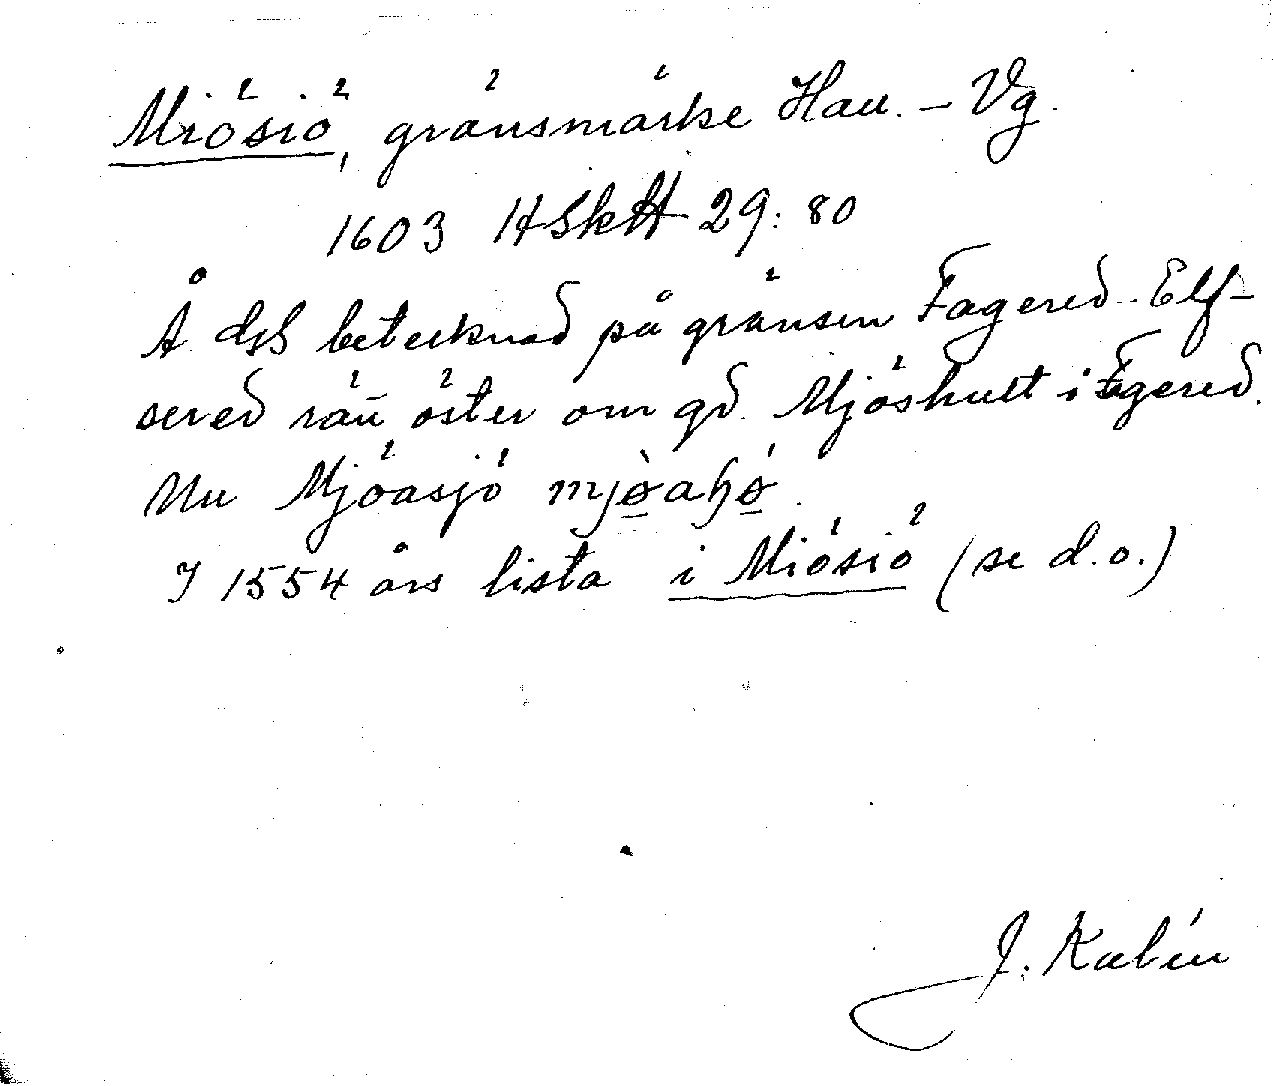 Miösiö, gränsmärke Hall. – Vg.
1603 HSkH 29: 80
Å dsB betecknad på gränsen Fagered - Elf-
sered rätt öster om gd. Mjöshult i Fagered.
Nu Mjöasjö
I 1554 års lista i Miösiö (se d.o.)
J. Kalén